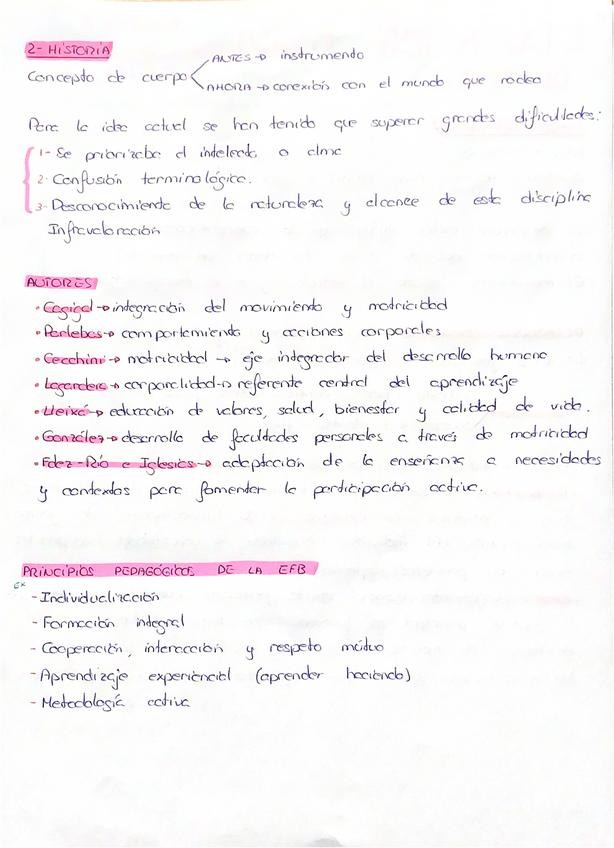 2- HISTORIA
Concepto de cuerpo
ANTES → instrumento
AHORA → conexión con el mundo que rodea
Para la idea actual se han tenido que superar grandes dificultades:
1- Se priorizaba el intelecto o alma
2- Confusión terminológica.
3- Desconocimiento de la naturaleza y alcance de esta disciplina
Infravaloración
AUTORES
• Cagigal → integración del movimiento y motricidad
• Parlebas → comportamiento y acciones corporales
• Cecchini → motricidad → eje integrador del desarrollo humano
• Lagardera → corporalidad → referente central del aprendizaje
• Lleixá → educación de valores, salud, bienestar y calidad de vida.
• González → desarrollo de facultades personales a través de motricidad
• Fdez-Río e Iglesias → adaptación de la enseñanza a necesidades
y contextos para fomentar la participación activa.
PRINCIPIOS PEDAGÓGICOS DE LA EFB
EX
- Individualización
- Formación integral
- Cooperación, interacción y respeto mútuo
- Aprendizaje experiencial (aprender haciendo)
- Metodología activa